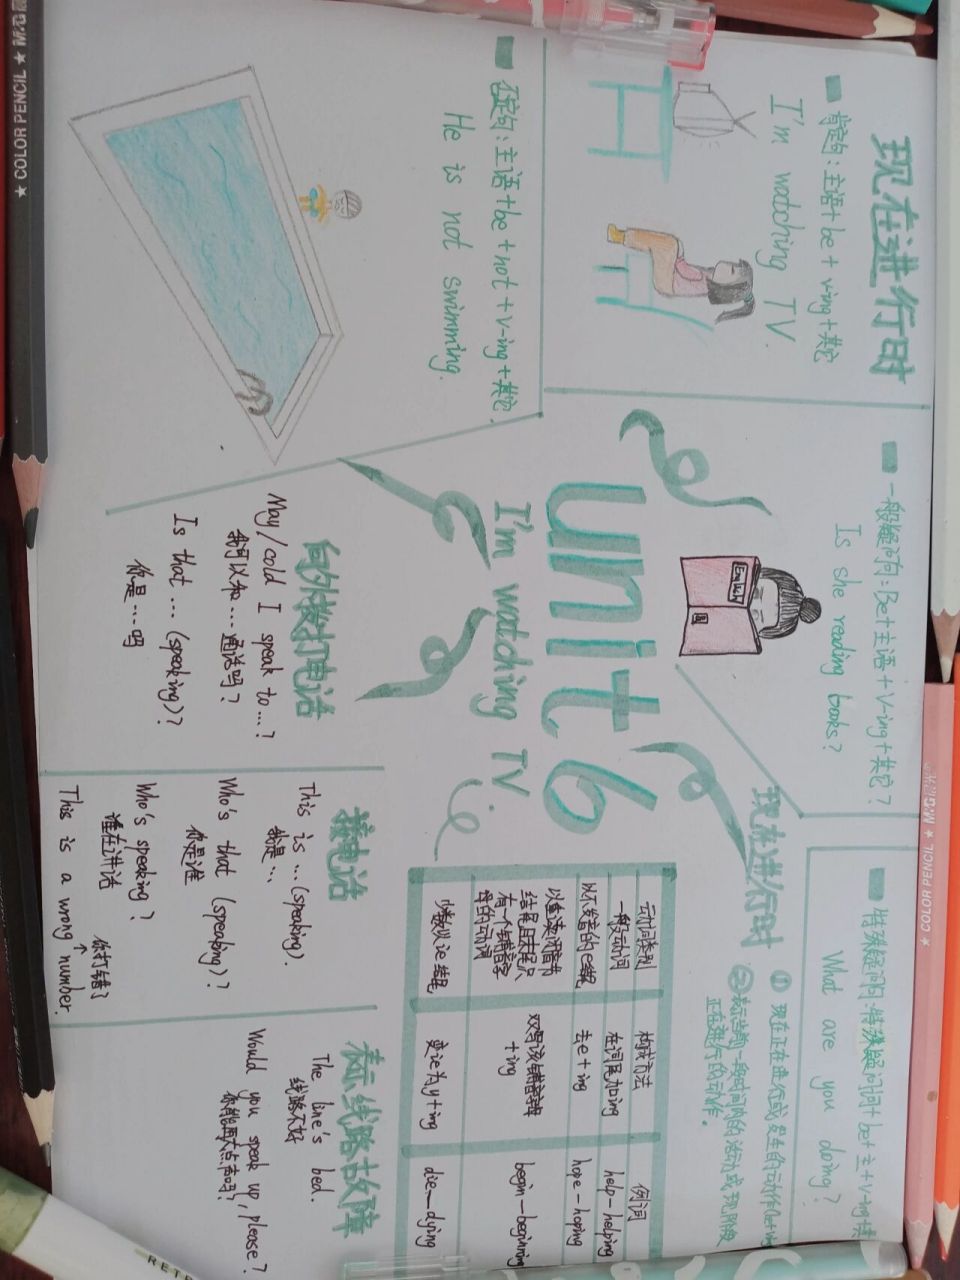 现在进行时
肯定句：主语+be+v-ing+其它
I'm watching TV.
否定句：主语+be+not+v-ing+其它.
He is not swimming.
一般疑问句：Be+主语+V-ing+其它？
Is she reading books?
English
特殊疑问句：特殊疑问词+be+主+v-ing+其
What are you doing?
unit 6
I'm watching TV.
现在进行时
①现在正在进行或发生的动作
②表示当前一段时间内的活动或现阶段
正在进行的动作。
动词类别 构成方法 例词
一般动词 在词尾加ing help—helping
以不发音的e结尾 去e+ing hope—hoping
以重读闭音节结尾且末尾只有一个辅音字母的动词 双写该辅音字母+ing begin—beginning
少数以ie结尾 变ie为y+ing die—dying
向外拨打电话
May/cold I speak to...?
我可以和…通话吗？
Is that ... (speaking)?
你是…吗
接电话
This is ... (speaking).
我是…
Who's that (speaking)?
你是谁
Who's speaking?
谁在讲话
你打错了
This is a wrong number.
表示线路故障
The line's bed.
线路不好
Would you speak up, please?
你能再大点声吗？
★ COLOR PENCIL ★ M&G
M&G ★ COLOR PENCIL ★
RETR